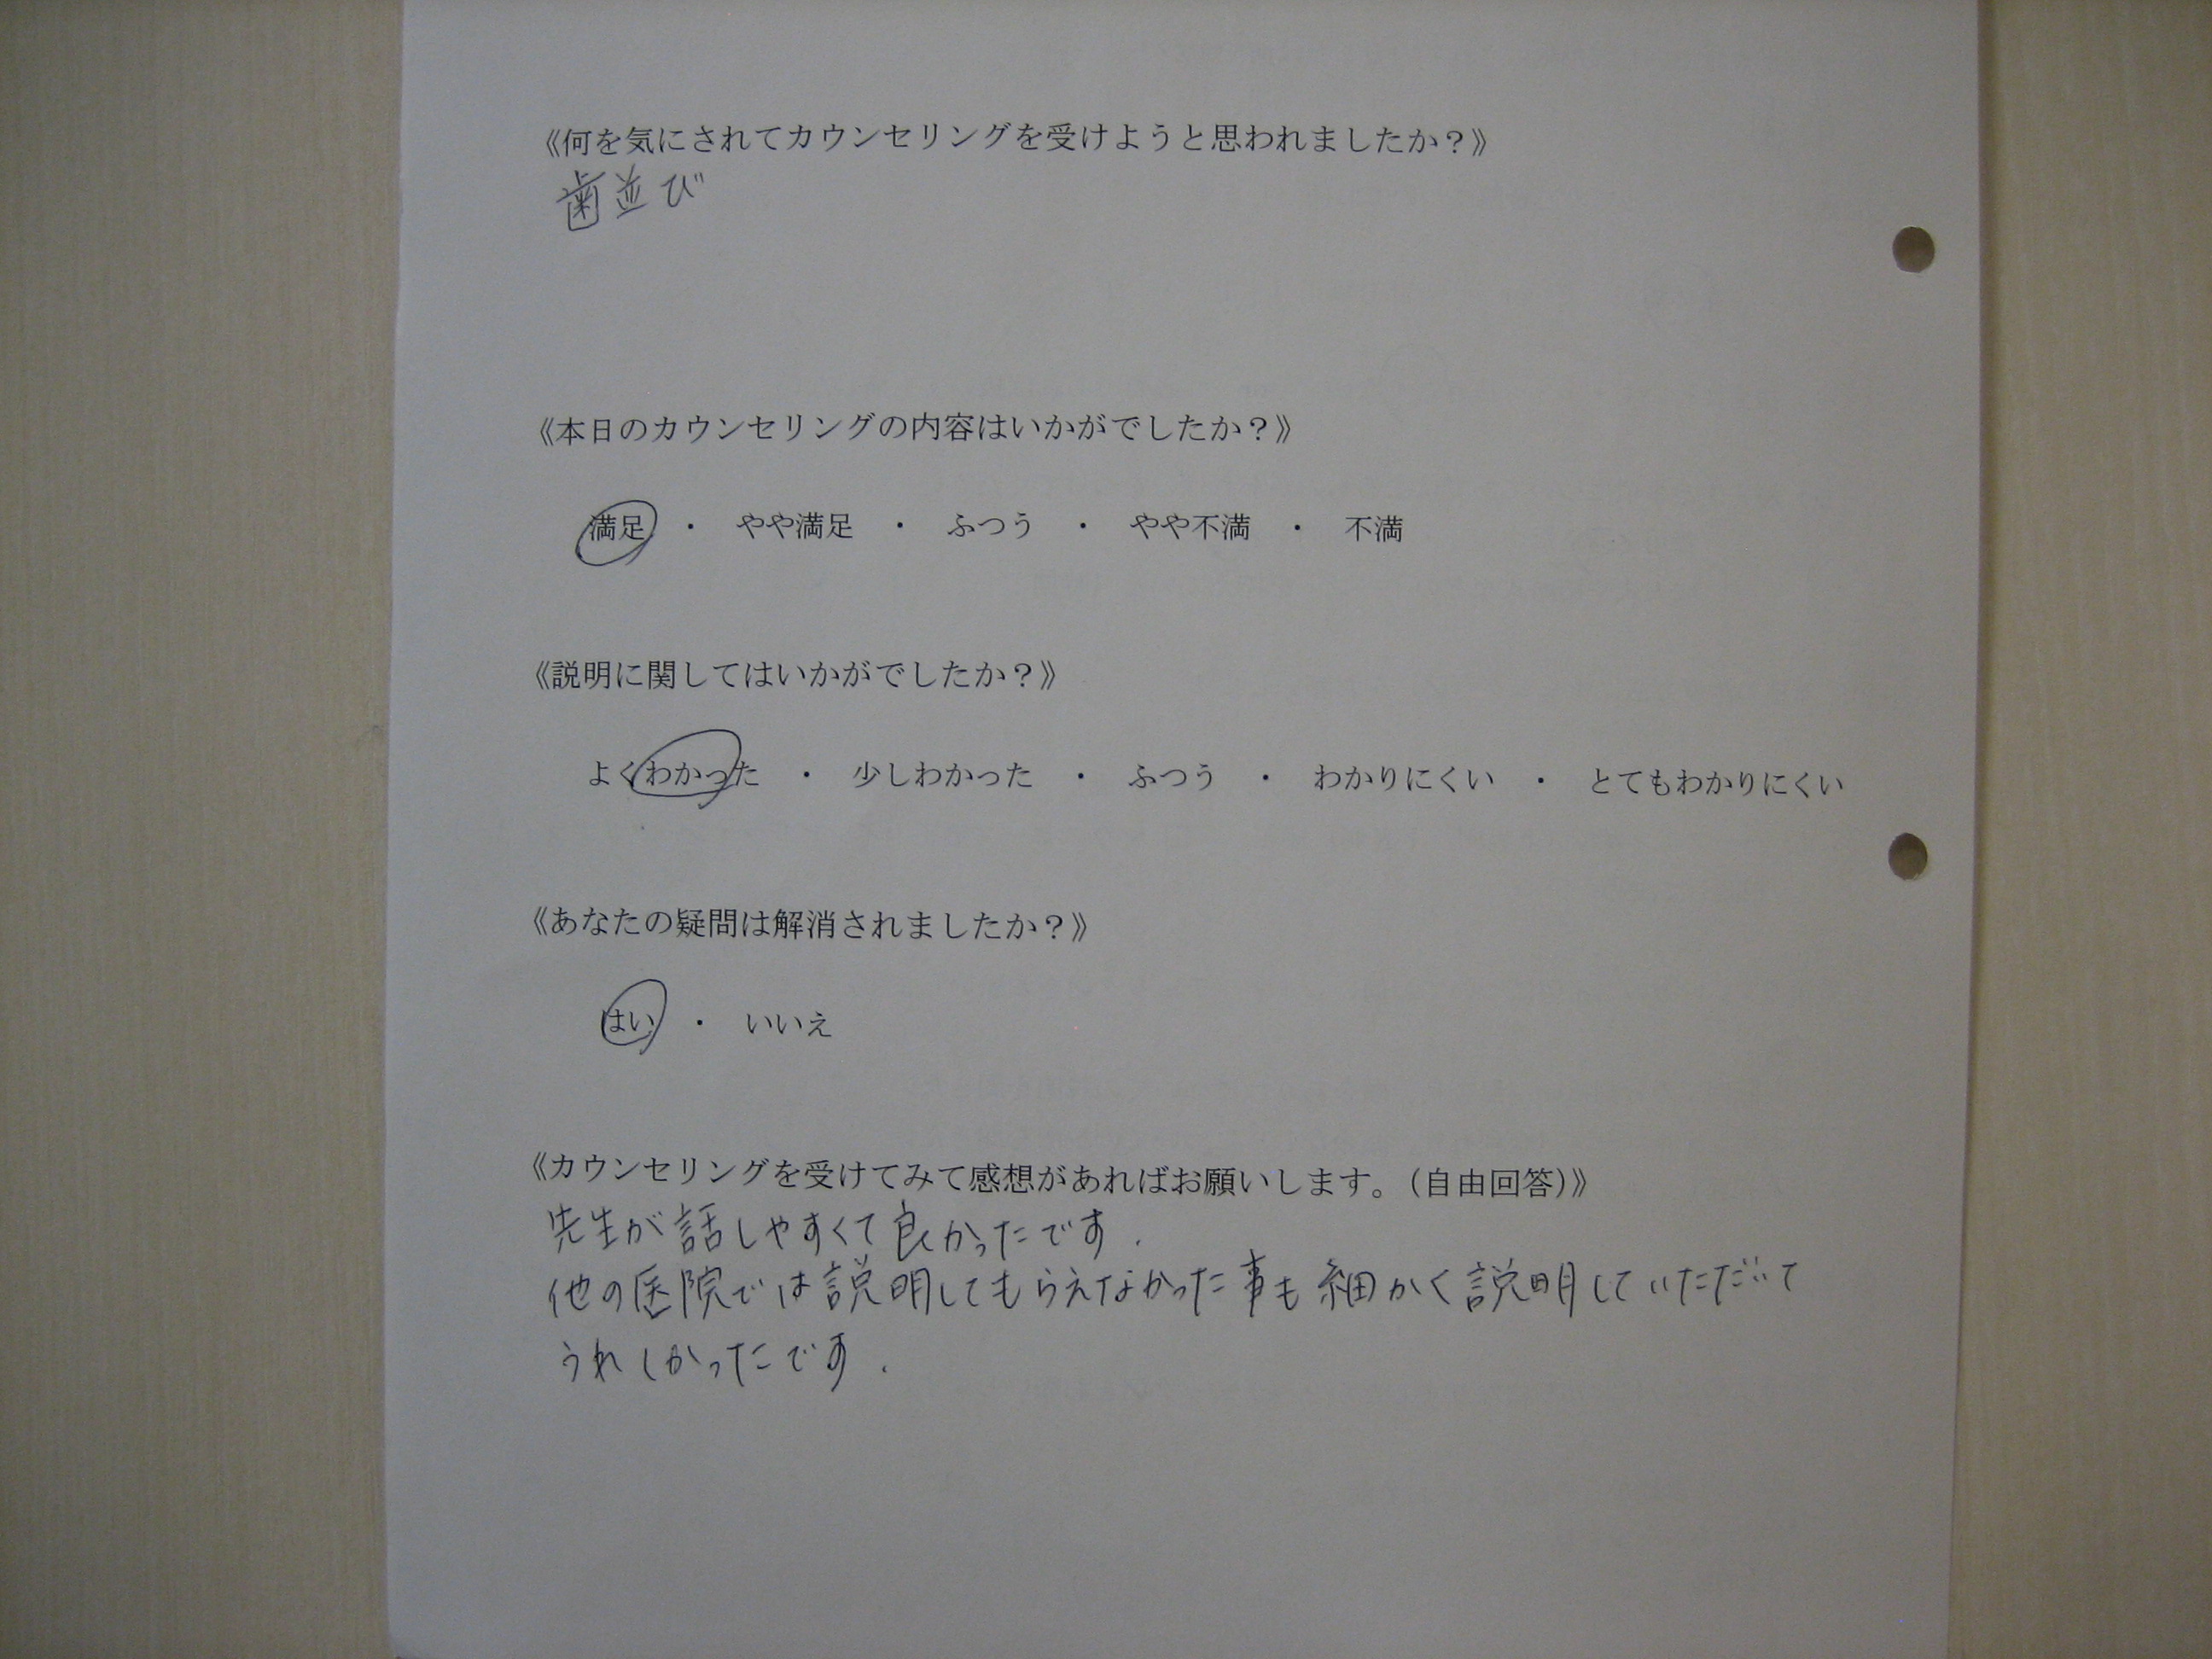 《何を気にされてカウンセリングを受けようと思われましたか？》
歯並び
《本日のカウンセリングの内容はいかがでしたか？》
満足 ・ やや満足 ・ ふつう ・ やや不満 ・ 不満
《説明に関してはいかがでしたか？》
よくわかった ・ 少しわかった ・ ふつう ・ わかりにくい ・ とてもわかりにくい
《あなたの疑問は解消されましたか？》
はい ・ いいえ
《カウンセリングを受けてみて感想があればお願いします。（自由回答）》
先生が話しやすくて良かったです.
他の医院では説明してもらえなかった事も細かく説明していただいて
うれしかったです.